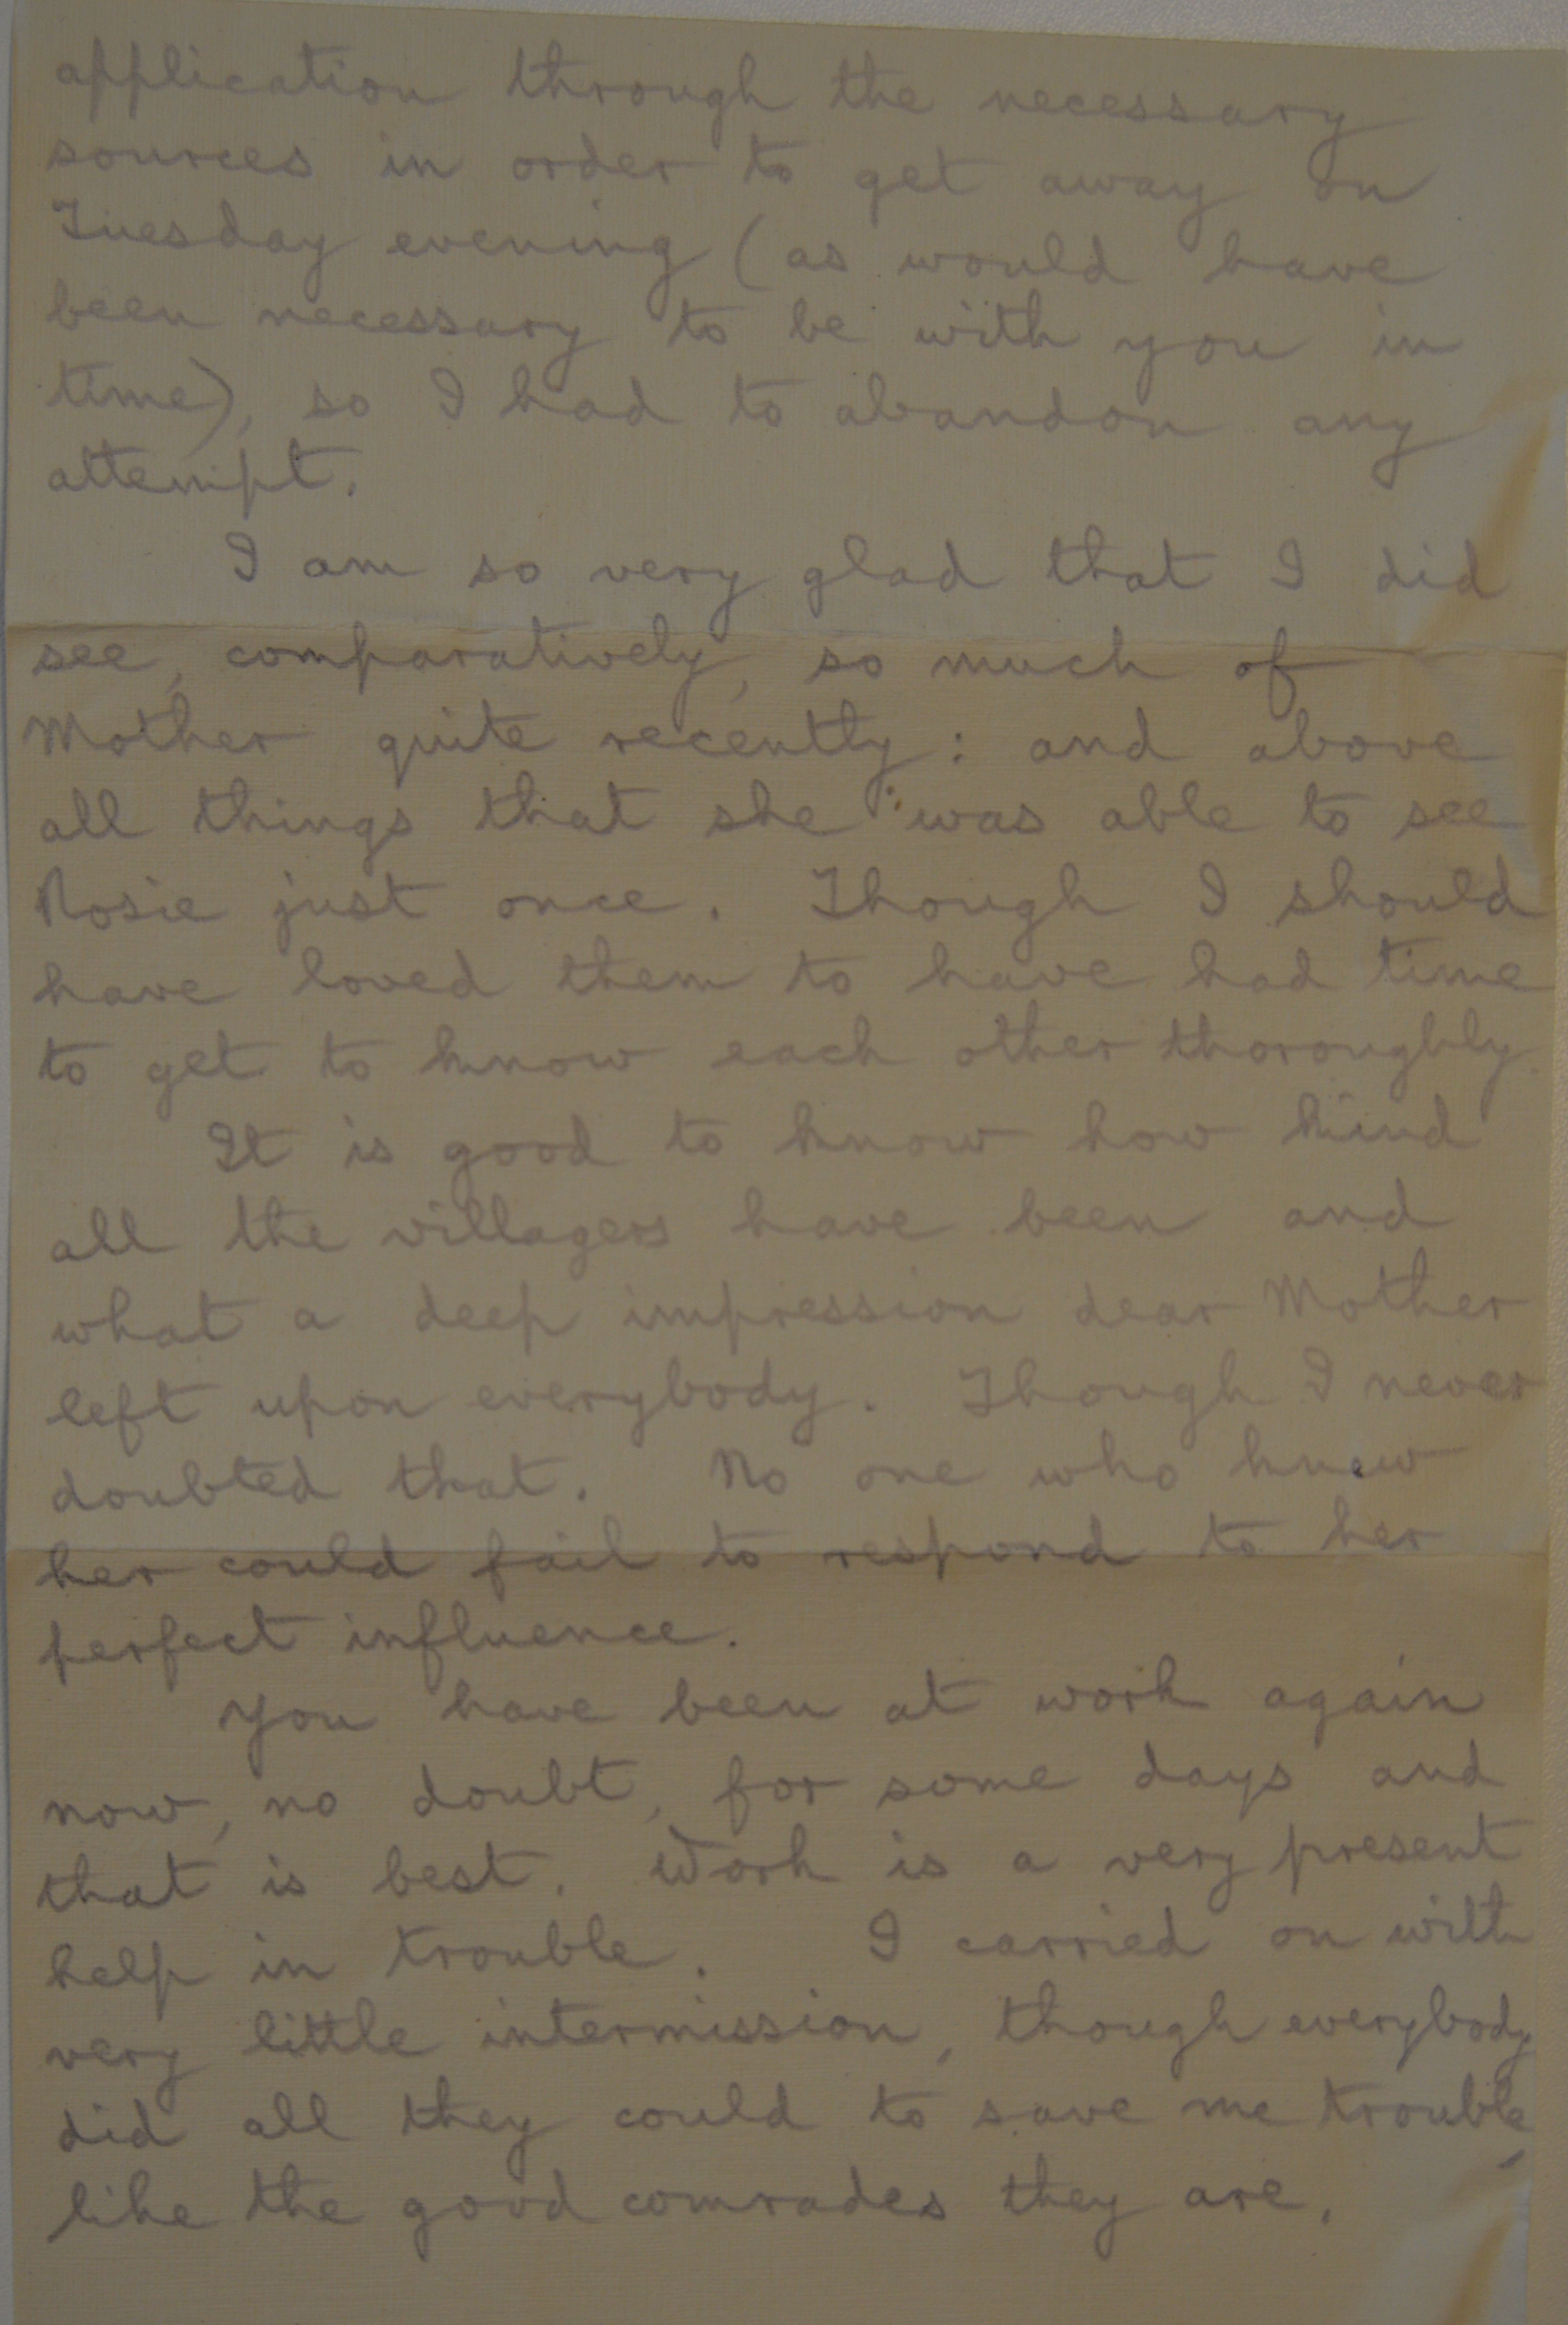 application through the necessary
sources in order to get away on
Tuesday evening (as would have
been necessary to be with you in
time), so I had to abandon any
attempt.
I am so very glad that I did
see, comparatively, so much of
Mother quite recently: and above
all things that she was able to see
Rosie just once. Though I should
have loved them to have had time
to get to know each other thoroughly.
It is good to know how kind
all the villagers have been and
what a deep impression dear Mother
left upon everybody. Though I never
doubted that. No one who knew
her could fail to respond to her
perfect influence.
You have been at work again
now, no doubt, for some days and
that is best. Work is a very present
help in trouble. I carried on with
very little intermission, though everybody
did all they could to save me trouble,
like the good comrades they are.